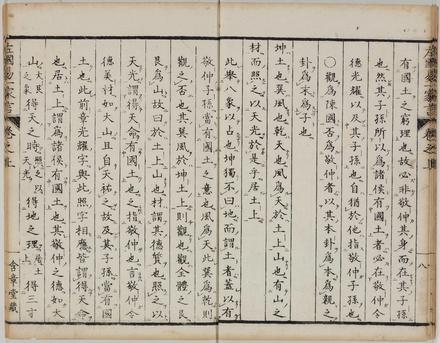 有國土之窮理也故必非敬仲其身而在其子孫
也然其子孫所以爲諸侯有國土者必在敬仲今
德光耀以及其子孫也自猶於他指敬仲子孫也
○觀爲陳國否爲敬仲者以其本卦爲本爲親之
卦爲末爲子也
坤土也巽風也乾天也風爲天於土上山也有山之
材而照之以天光於是乎居土上
此擧八象以占也坤獨不曰地而謂土者蓋以有
敬仲子孫當有國土之意也風爲天此巽爲乾則
觀之否也其巽風於坤土上則觀也觀全體之艮
艮爲山故曰於土上山材謂其德質也照之以
天光謂得天命有國土之指敬仲也言敬仲之
德美材如大山且自天祐之故及其子孫當有國
土也此前章光耀字與此照字相應皆謂得天命
也居土上謂爲諸侯有國土也其敬仲之德如大
山之象得天之時照之以天光得地之理居土上得三才
左國易一家言 卷之上
八
含章堂藏